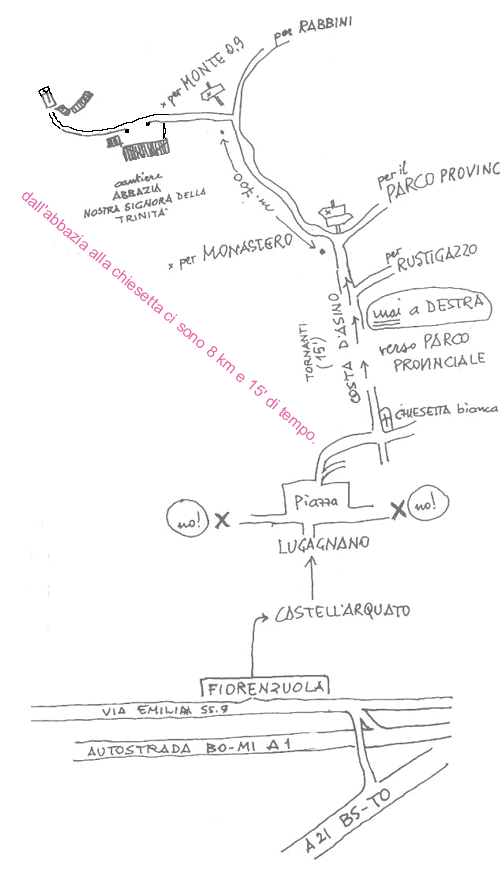 per RABBINI
x per MONTE 0,9
cantiere
ABBAZIA
NOSTRA SIGNORA DELLA
TRINITA'
per il
PARCO PROVINC
x per MONASTERO
per
RUSTIGAZZO
mai a DESTRA
verso PARCO
PROVINCIALE
TORNANTI
(15')
COSTA D'ASINO
dall'abbazia alla chiesetta ci sono 8 km e 15' di tempo.
CHIESETTA bianca
Piazza
no! X
X no!
LUGAGNANO
CASTELL'ARQUATO
FIORENZUOLA
VIA EMILIA SS.9
AUTOSTRADA BO-MI A1
A21 BS-TO